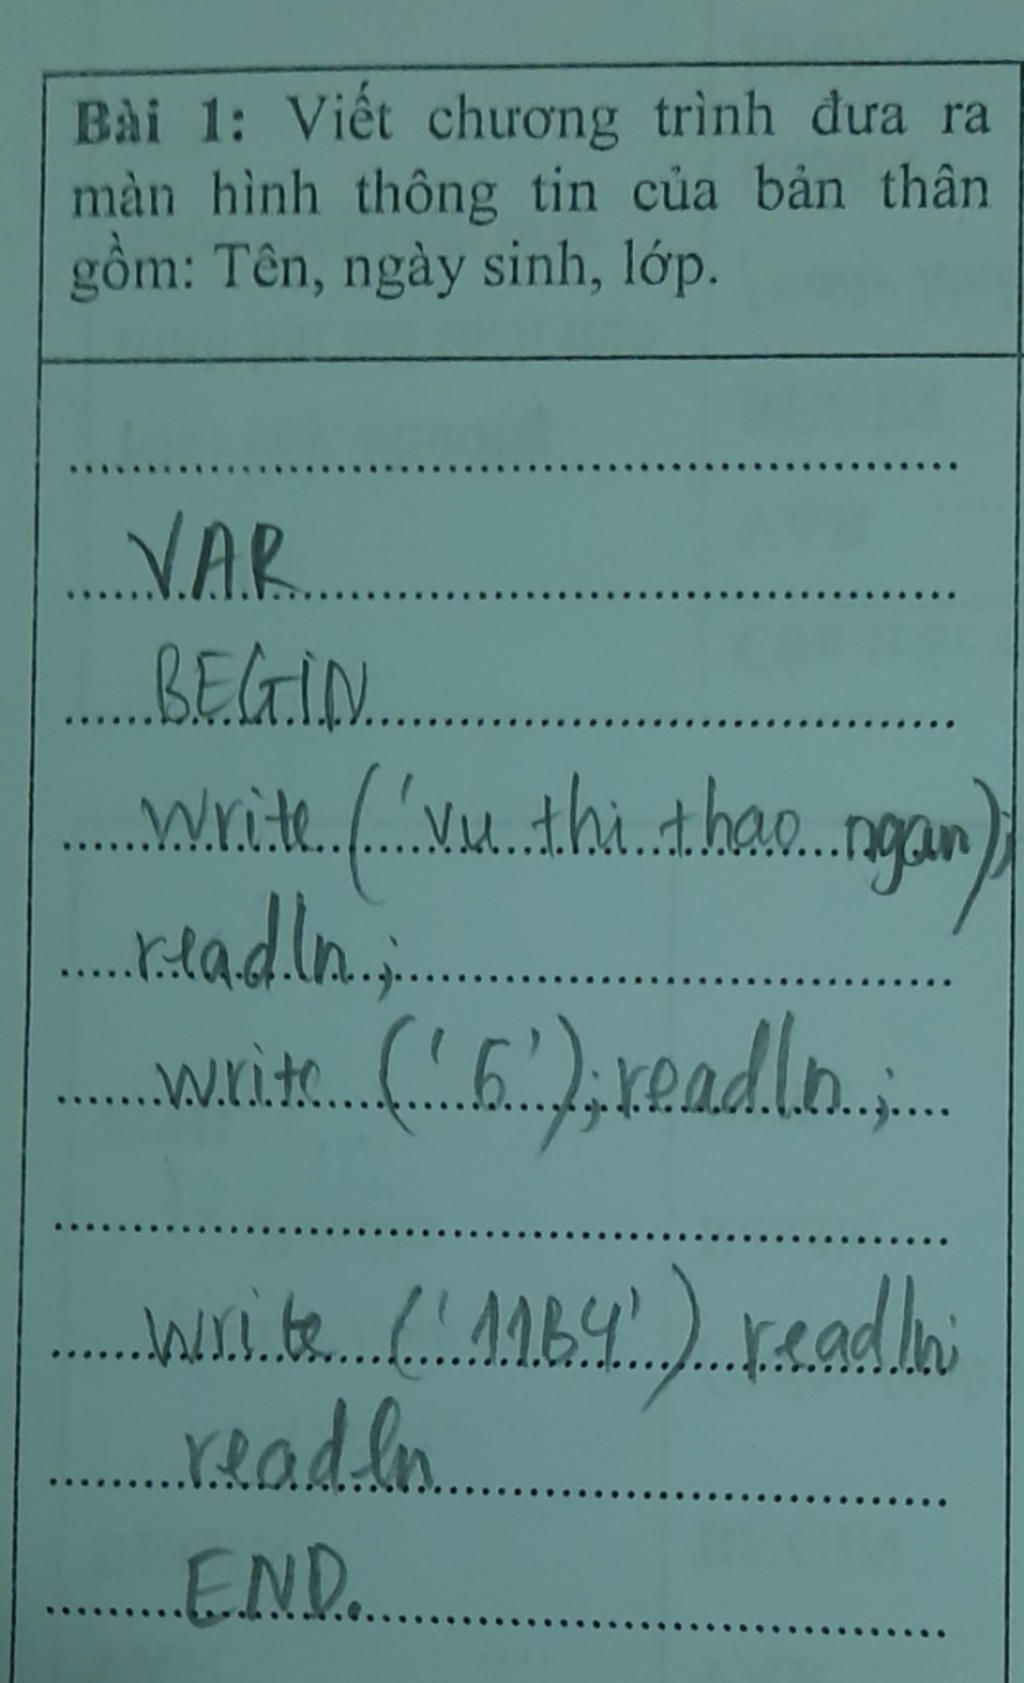 Bài 1: Viết chương trình đưa ra
màn hình thông tin của bản thân
gồm: Tên, ngày sinh, lớp.
VAR
BEGIN
write ('vu thi thao ngan);
readln;
write ('6'); readln;
write ('11B4') readln;
readln
END.